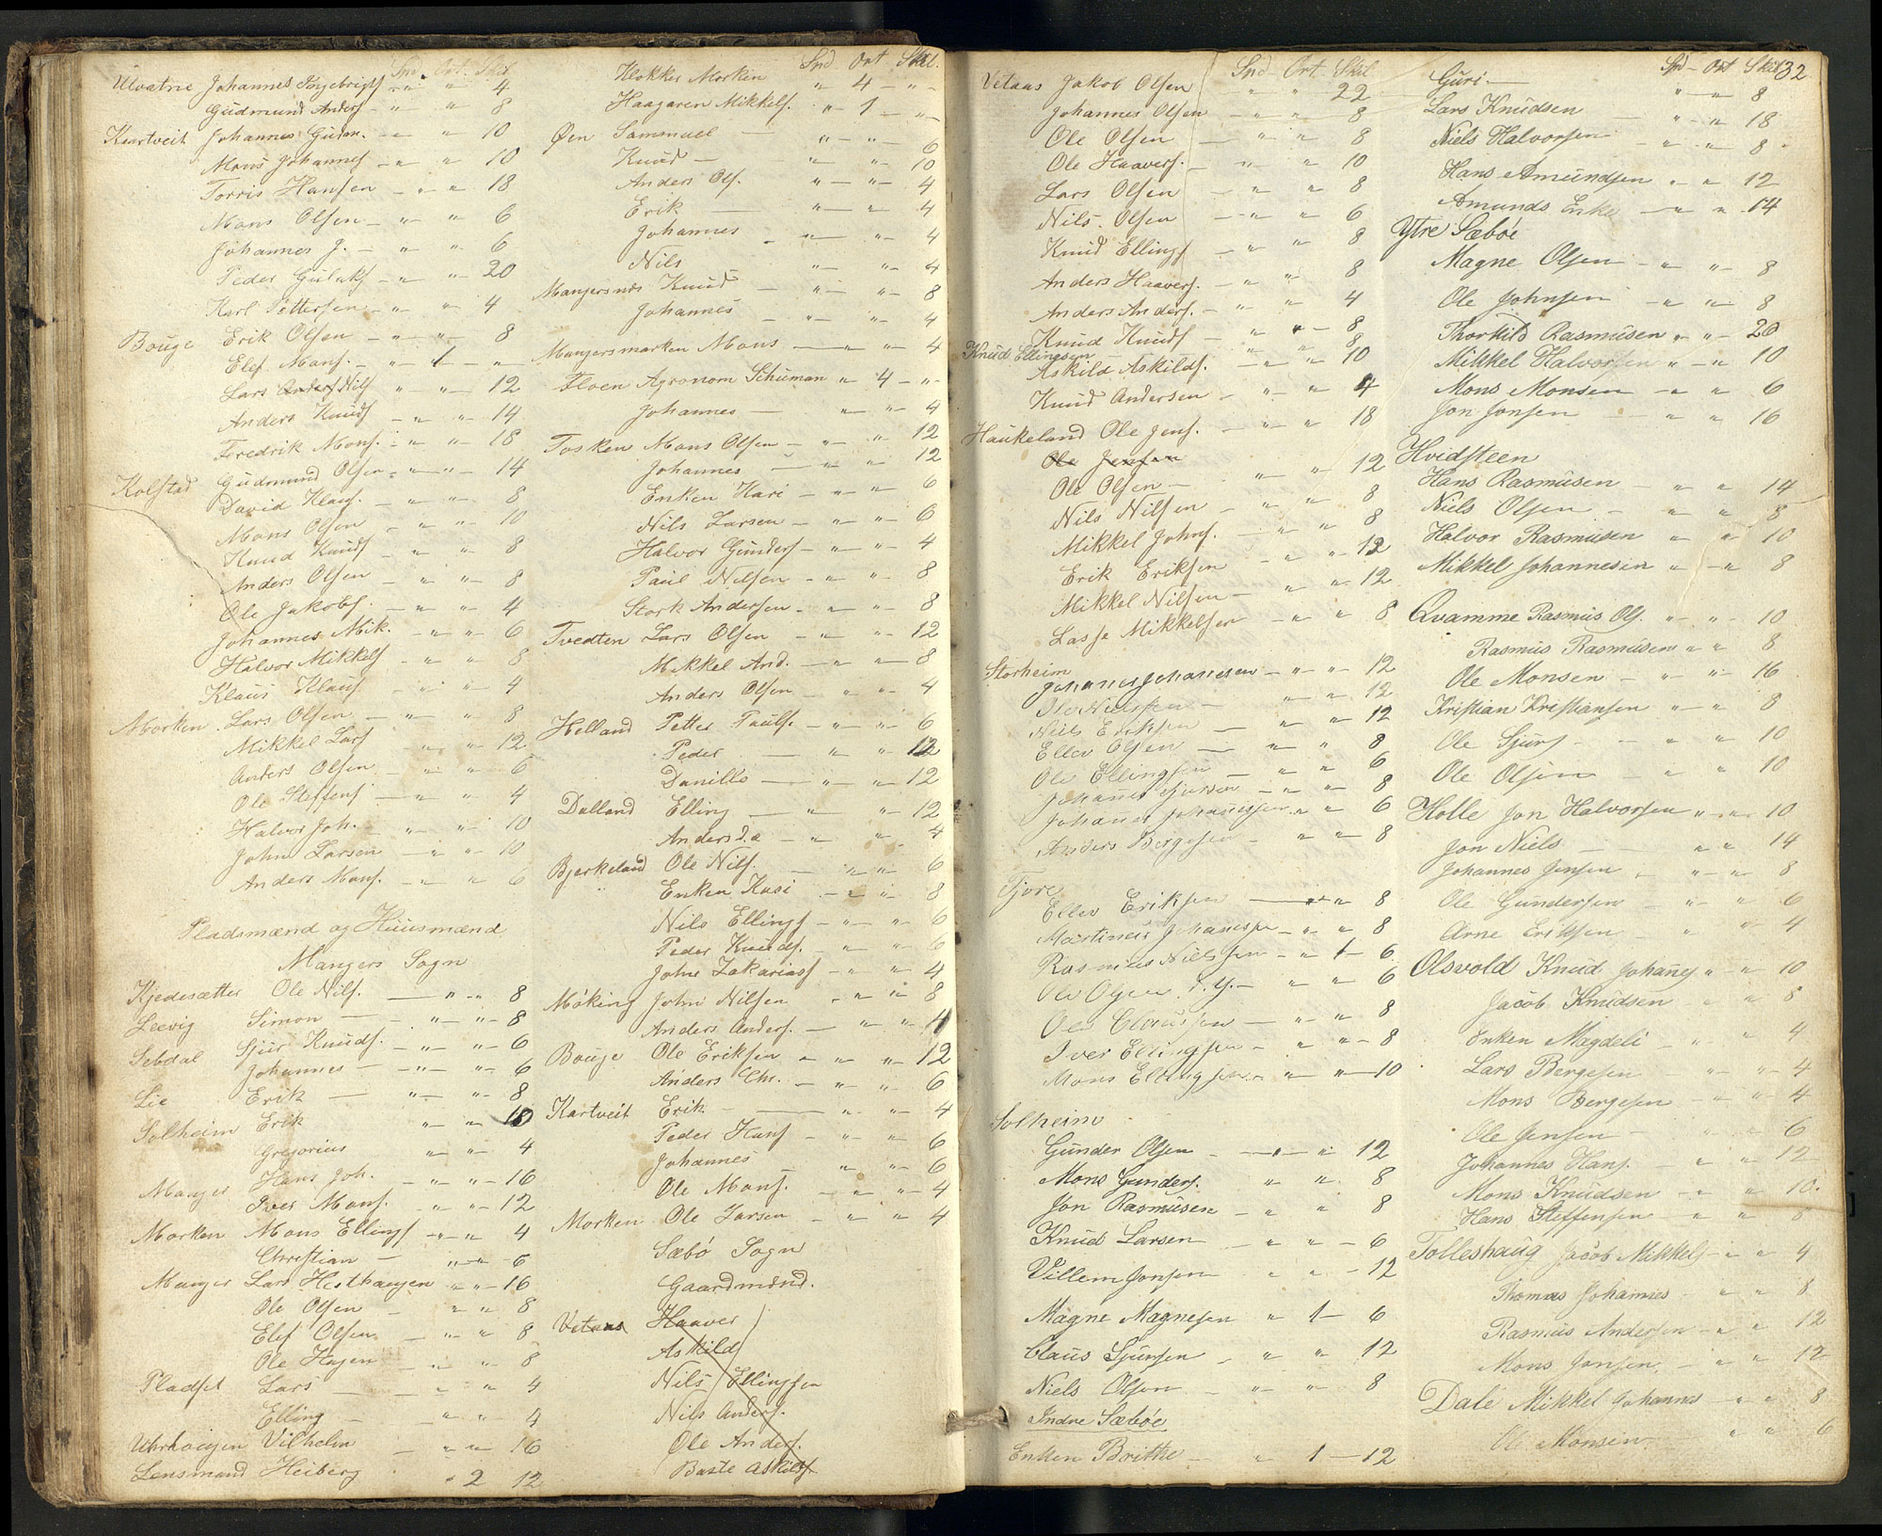 Spd. Ort. Skil.
Ulvatne Johannes Ingebrigts " " 4
Gudmund Anders " " 8
Kvartveit Johannes Gudm. " " 10
Mons Johannes " " 10
Torris Hansen " " 18
Mons Olsen " " 6
Johannes J. " " 6
Peder Gulaks " " 20
Karl Pettersen " " 4
Bouge Erik Olsen " " 8
Elef Mons. " 1 "
Lars Nils " " 12
Anders Knuds " " 14
Fredrik Mons. " " 18
Kolstad Gudmund Olsen " " 14
David Klaus. " " 8
Mons Olsen " " 10
Knud Knuds " " 8
Anders Olsen " " 8
Ole Jakobs. " " 4
Johannes Mik. " " 6
Halvor Mikkels " " 8
Klaus Klaus " " 4
Morken Lars Olsen " " 8
Mikkel Lars " " 12
Anders Olsen " " 6
Ole Steffens " " 4
Halvor Joh. " " 10
John Larsen " " 10
Anders Mons. " " 6
Pladsmænd og Huusmænd
Mangers Sogn
Kjedesætter Ole Nils. " " 8
Leevig Simon " " 8
Sebdal Sjur Knuds. " " 6
Johannes " " 6
Lie Erik " " 8
Solheim Erik " " 10
Gregorius " " 4
Manger Hans Joh. " " 16
Iver Mons. " " 12
Morken Mons Ellings " " 4
Christian " " 6
Manger Lars Hesthaugen " " 16
Ole Olsen " " 8
Elef Olsen " " 8
Ole Hagen " " 8
Pladset Lars " " 4
Elling " " 4
Uhrhaugen Vilhelm " " 16
Lensmand Heiberg " 2 12
Spd Ort Skil.
Klokker Morken " 4 "
Haagaren Mikkels. " 1 "
Øen Sammuel " " 6
Knud " " 10
Anders Ols. " " 4
Erik " " 4
Johannes " " 4
Nils " " 4
Mangersnes Knud " " 8
Johannes " " 4
Mangersmarken Mons " " 4
Floen Agronom Schuman " 4 "
Johannes " " 4
Tosken Mons Olsen " " 12
Johannes " " 12
Enken Kari " " 6
Nils Larsen " " 6
Halvor Gunders " " 4
Paul Nilsen " " 8
Stork Andersen " " 8
Tvedten Lars Olsen " " 12
Mikkel And. " " 8
Anders Olsen " " 4
Helland Petter Pauls. " " 6
Peder " " 12
Danills " " 12
Dalland Elling " " 12
Anders d.æ " " 4
Bjerkeland Ole Nils. " " 6
Enken Kasi " " 8
Nils Ellings " " 6
Peder Knuds. " " 6
John Zakariass " " 4
Møking John Nilsen " " 8
Anders Anders. " " 4
Bouge Ole Eriksen " " 12
Anders Chr. " " 6
Kartveit Erik " " 4
Peder Hans " " 6
Johannes " " 6
Ole Mons. " " 4
Morken Ole Larsen " " 4
Sæbø Sogn
Gaardmænd.
Vetaas Haaver
Askild
Nils Ellingsen
Nils Anders.
Ole Anders.
Baste Askilds
Spd Ort. Skil
Vetaas Jakob Olsen " " 22
Johannes Olsen " " 8
Ole Olsen " " 8
Ole Haavers. " " 10
Lars Olsen " " 8
Nils Olsen " " 6
Knud Ellings " " 8
Anders Haavers. " " 8
Anders Anders. " " 4
Knud Knuds " " 8
Knud Ellingsen " " 8
Askild Askilds. " " 10
Knud Andersen " " 4
Haukeland Ole Jens. " " 18
Ole Jensen
Ole Olsen " " 12
Nils Nilsen " " 8
Mikkel Johns. " " 8
Erik Eriksen " " 12
Mikkel Nilsen " " 12
Lasse Mikkelsen " " 8
Storheim
Johanes Johanesen " " 12
Ole Nielssen " " 12
Niels Eriksen " " 12
Eller Olsen " " 8
Ole Ellingsen " " 6
Johanes Sjursen " " 8
Johanes Johanessen " " 6
Anders Børgesen " " 8
Fjøre
Eller Eriksen " " 8
Martinus Johanesen " " 8
Rasmus Nielssen " 1 6
Ole Olsen d. y. " " 6
Ole Claussen " " 8
Iver Ellingsen " " 8
Mons Ellingsen " " 10
Solheim
Gunder Olsen " " 12
Mons Gunders. " " 8
Jon Rasmusen " " 8
Knud Larsen " " 6
Villem Jonsen " " 12
Magne Magnesen " 1 6
Claus Sjursen " " 12
Niels Olsen " " 8
Indre Sæbøe
Enken Brithe " 1 12
Spd Ort Skil 32
Guri " " 8
Lars Knudsen " " 18
Niels Halvorsen " " 8
Hans Amundsen " " 12
Amunds Enke " " 14
Ytre Sæbøe
Magne Olsen " " 8
Ole Johnsen " " 8
Thorkild Rasmusen " " 20
Mikkel Halvorsen " " 10
Mons Monsen " " 6
Jon Jonsen " " 16
Hvidsteen
Hans Rasmusen " " 14
Niels Olsen " " 8
Halvor Rasmusen " " 10
Mikkel Johannesen " " 8
Qvamme Rasmus Ols. " " 10
Rasmus Rasmusen " " 8
Ole Monsen " " 16
Kristian Kristiansen " " 8
Ole Sjurs " " 10
Ole Olsen " " 10
Holle Jon Halvorsen " " 10
Jon Niels " " 14
Johannes Jensen " " 8
Ole Gundersen " " 6
Arne Eriksen " " 4
Olsvold Knud Johanes " " 10
Jacob Knudsen " " 8
Enken Magdeli " " 4
Lars Børgesen " " 4
Mons Børgesen " " 4
Ole Jensen " " 6
Johannes Hans. " " 12
Mons Knudsen " " 10
Hans Steffensen " " 8
Tolleshaug Jacob Mikkels " " 4
Thomas Johannes " " 8
Rasmus Andersen " " 12
Mons Jonsen " " 12
Dale Mikkel Johannes " " 8
Ole Monsen " " 6